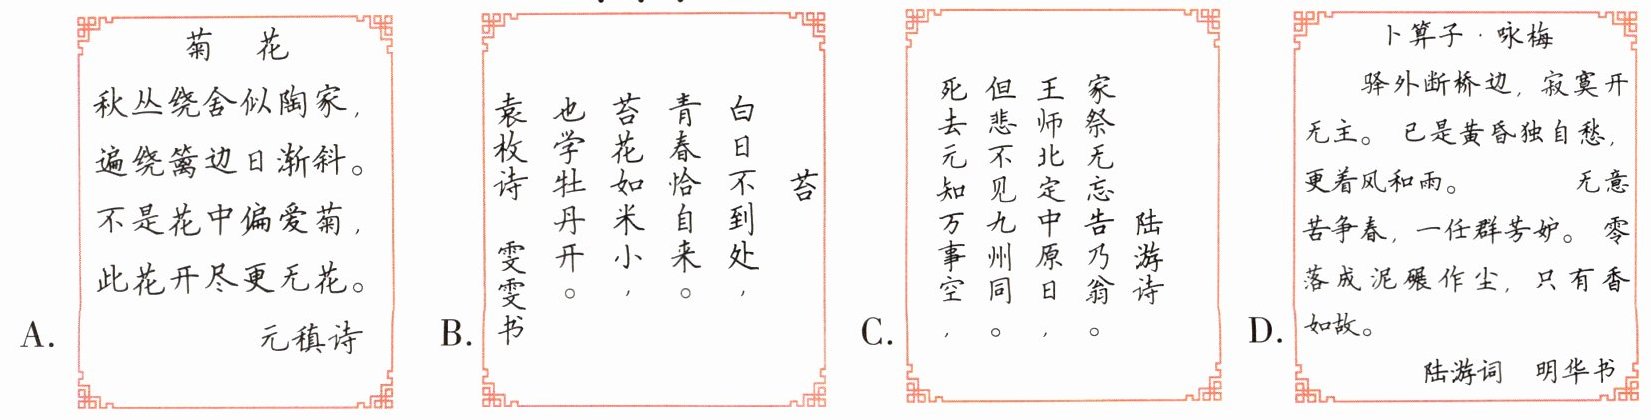 A.
菊 花
秋丛绕舍似陶家，
遍绕篱边日渐斜。
不是花中偏爱菊，
此花开尽更无花。
元稹诗
B.
苔
白日不到处，
青春恰自来。
苔花如米小，
也学牡丹开。
袁枚诗 雯雯书
C.
死去元知万事空，
但悲不见九州同。
王师北定中原日，
家祭无忘告乃翁。
陆游诗
D.
卜算子·咏梅
驿外断桥边，寂寞开
无主。已是黄昏独自愁，
更着风和雨。 无意
苦争春，一任群芳妒。零
落成泥碾作尘，只有香
如故。
陆游词 明华书